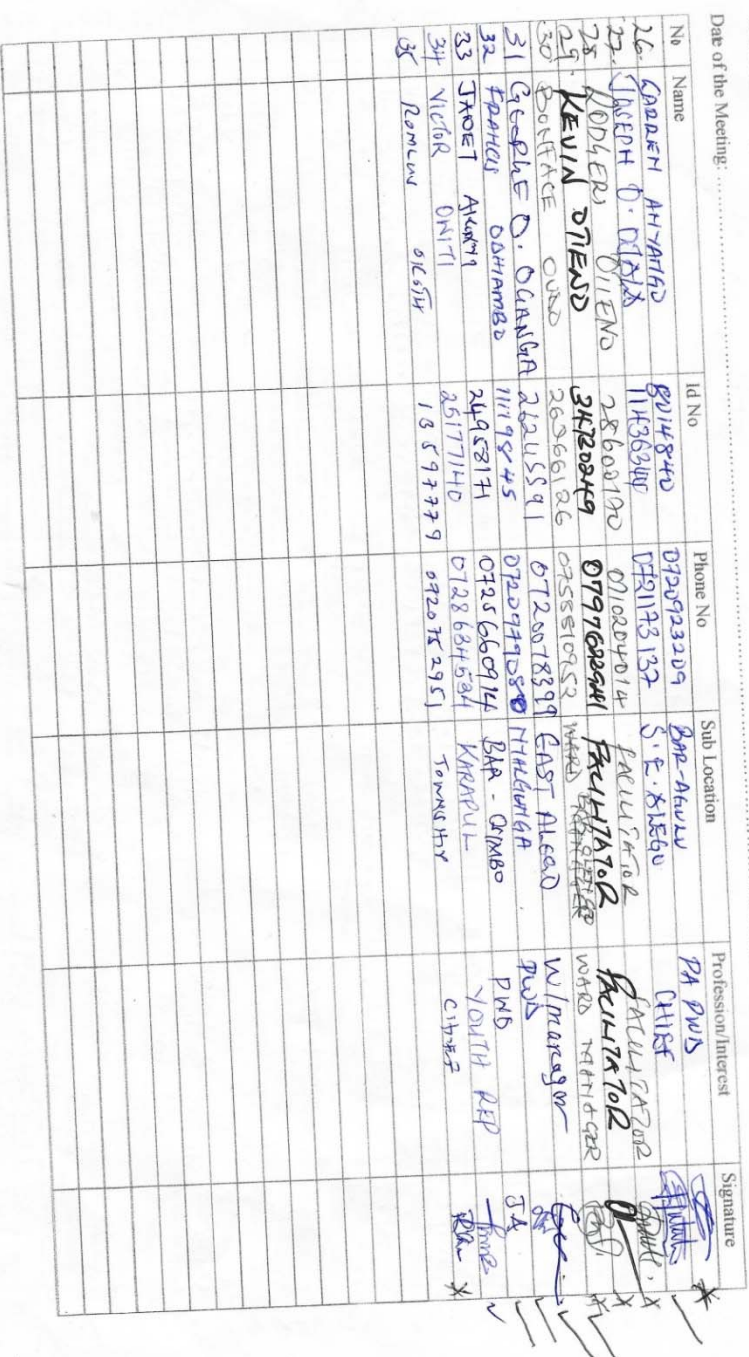 Date of the Meeting:
No Name Id No Phone No Sub Location Profession/Interest Signature
26. CARREN ANYANGO 0720923209 BAR-AGULU PA PWD
27. JOSEPH O. 11436344 0721173137 S.E. ALEGO CHIEF
28 RODGERS OTIENO 28600170 0710204014 FACILITATOR FACILITATOR
29. KEVIN OTIENO 34720249 FACILITATOR FACILITATOR
30. BONFACE 26366126 0755510952 WARD WARD MANAGER
31 GEORGE O. OGANGA 0720078399 EAST ALEGO W/manager
32 FRANCIS ODHIAMBO 11198845 NYALGUNGA PWD
33 JANET AKINYI 24958171 0725660914 BAR - OSIMBO PWD JA
34 VICTOR ONITI 25177140 0728634534 KARAPUL YOUTH REP
35 ROMLUS OKOTH 13597779 0720752951 TOWNSHIP Citizen